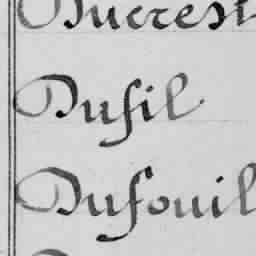 Ducrest
Dufil
Dufouil